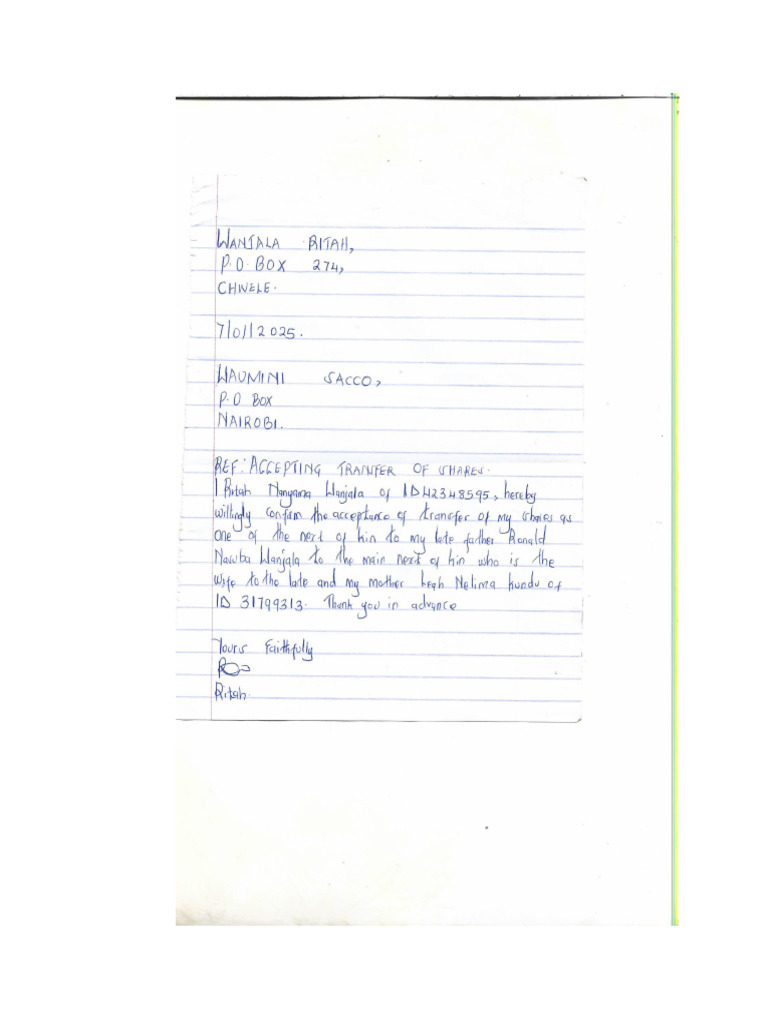 WANJALA RITAH,
P.O. BOX 274,
CHWELE.
7/01/2025.
WAUMINI SACCO,
P.O BOX
NAIROBI.
REF: ACCEPTING TRANFER OF SHARES.
I Ritah Nanyama Wanjala of ID 42348595, hereby
willingly confirm the acceptance of transfer of my shares as
one of the next of kin to my late father Ronald
Wanjala to the main next of kin who is the
wife to the late and my mother Leah Nelima Kundu of
ID 31799313. Thank you in advance
Yours Faithfully
Ritah.